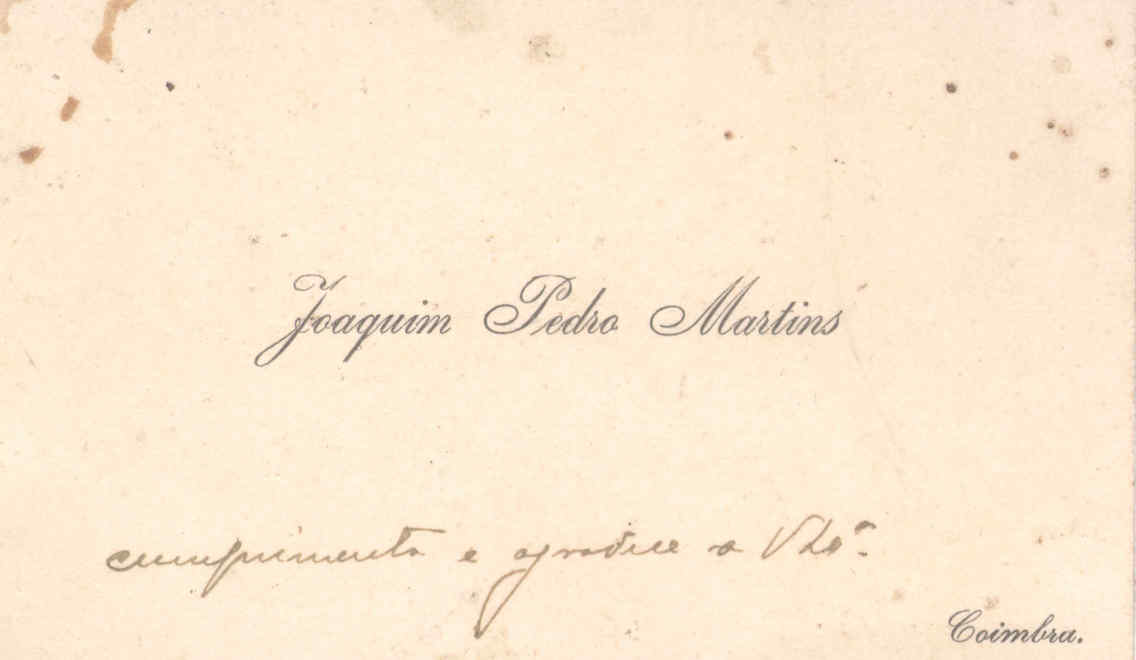 Joaquim Pedro Martins
cumprimenta e agradece a V.
Coimbra.